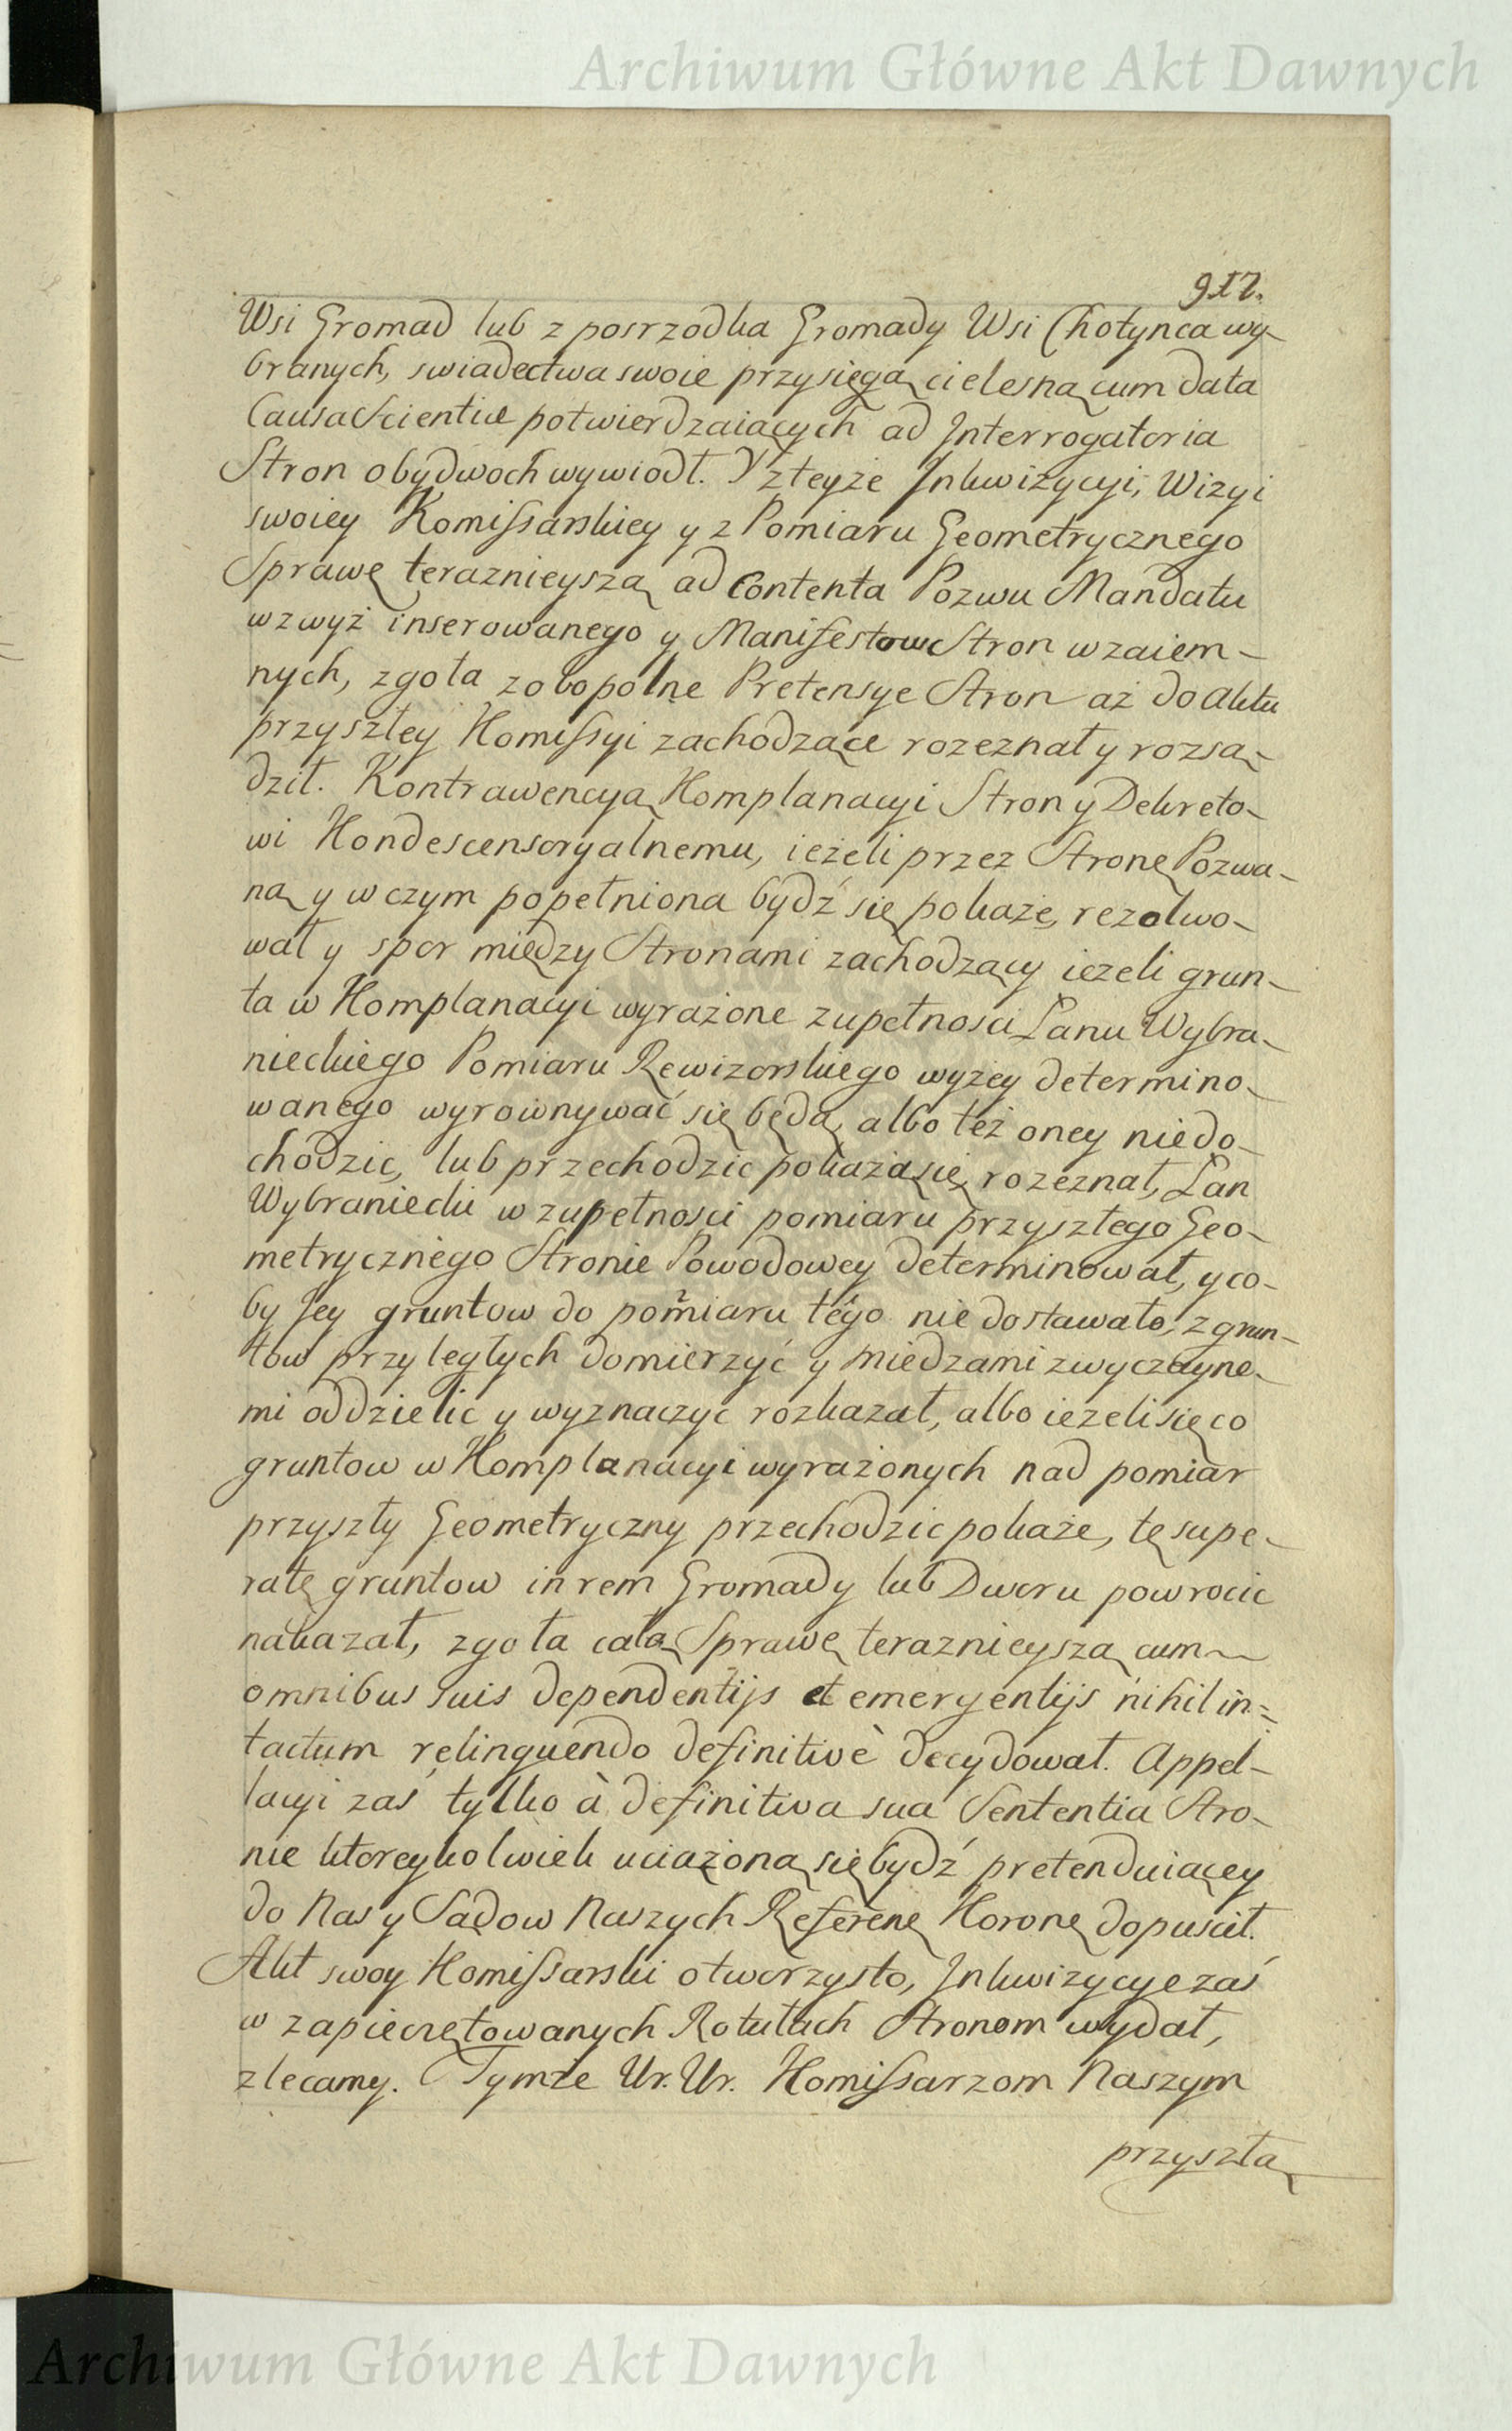 Archiwum Główne Akt Dawnych
917.
Wsi Gromad lub z posrzodka Gromady Wsi Chotynca wy-
branych, swiadectwa swoie przysięgą cielesną cum data
Causa Scientiæ potwierdzaiących ad Interrogatoria
Stron obydwoch wywiodł. Y z teyże Inkwizycyi, Wizyi
swoiey Komissarskiey y z Pomiaru Geometrycznego
Sprawę teraznieyszą ad Contenta Pozwu Mandatu
wzwyż inserowanego y Manifestow Stron wzaiem-
nych, zgoła zobopolne Pretensye Stron aż do aktu
przyszłey Komissyi zachodzące rozeznał y rozsą-
dził. Kontrawencyą Komplanacyi Stron y Dekreto-
wi Kondescensoryalnemu, ieżeli przez Stronę Pozwa-
ną y w czym popełniona bydź się pokaże, rezolwo-
wał y spor między Stronami zachodzący ieżeli grun-
ta w Komplanacyi wyrażone zupełnosci Łanu Wybra-
nieckiego Pomiaru Rewizorskiego wyżey determino-
wanego wyrownywać się będą, albo też oney niedo-
chodzić, lub przechodzic pokażą się, rozeznał, Łan
Wybraniecki w zupełnosci pomiaru przyszłego Geo-
metrycznego Stronie Powodowey determinował, y co-
by Jey gruntow do pomiaru tego nie dostawało, z grun-
tow przyległych domierzyć y miedzami zwyczayne-
mi oddzielic y wyznaczyć rozkazał, albo ieżeli się co
gruntow w Komplanacyi wyrażonych nad pomiar
przyszły Geometryczny przechodzic pokaże, tę supe-
ratę gruntow in rem Gromady lub Dworu powrocic
nakazał, zgoła całą Sprawę teraznieyszą cum
omnibus suis dependentijs et emergentijs nihil in=
tactum relinquendo definitivè decydował. Appel-
lacyi zaś tylko à definitiva sua Sententia Stro-
nie ktoreykolwiek uciążoną się bydź pretenduiącey
do Nas y Sądow Naszych Referenę Koronę dopuscił.
Akt swoy Komissarski otworzysto, Inkwizycye zaś
w zapieczętowanych Rotułach Stronom wydał,
zlecamy. Tymże Ur. Ur. Komissarzom Naszym
przyszłą
Archiwum Główne Akt Dawnych